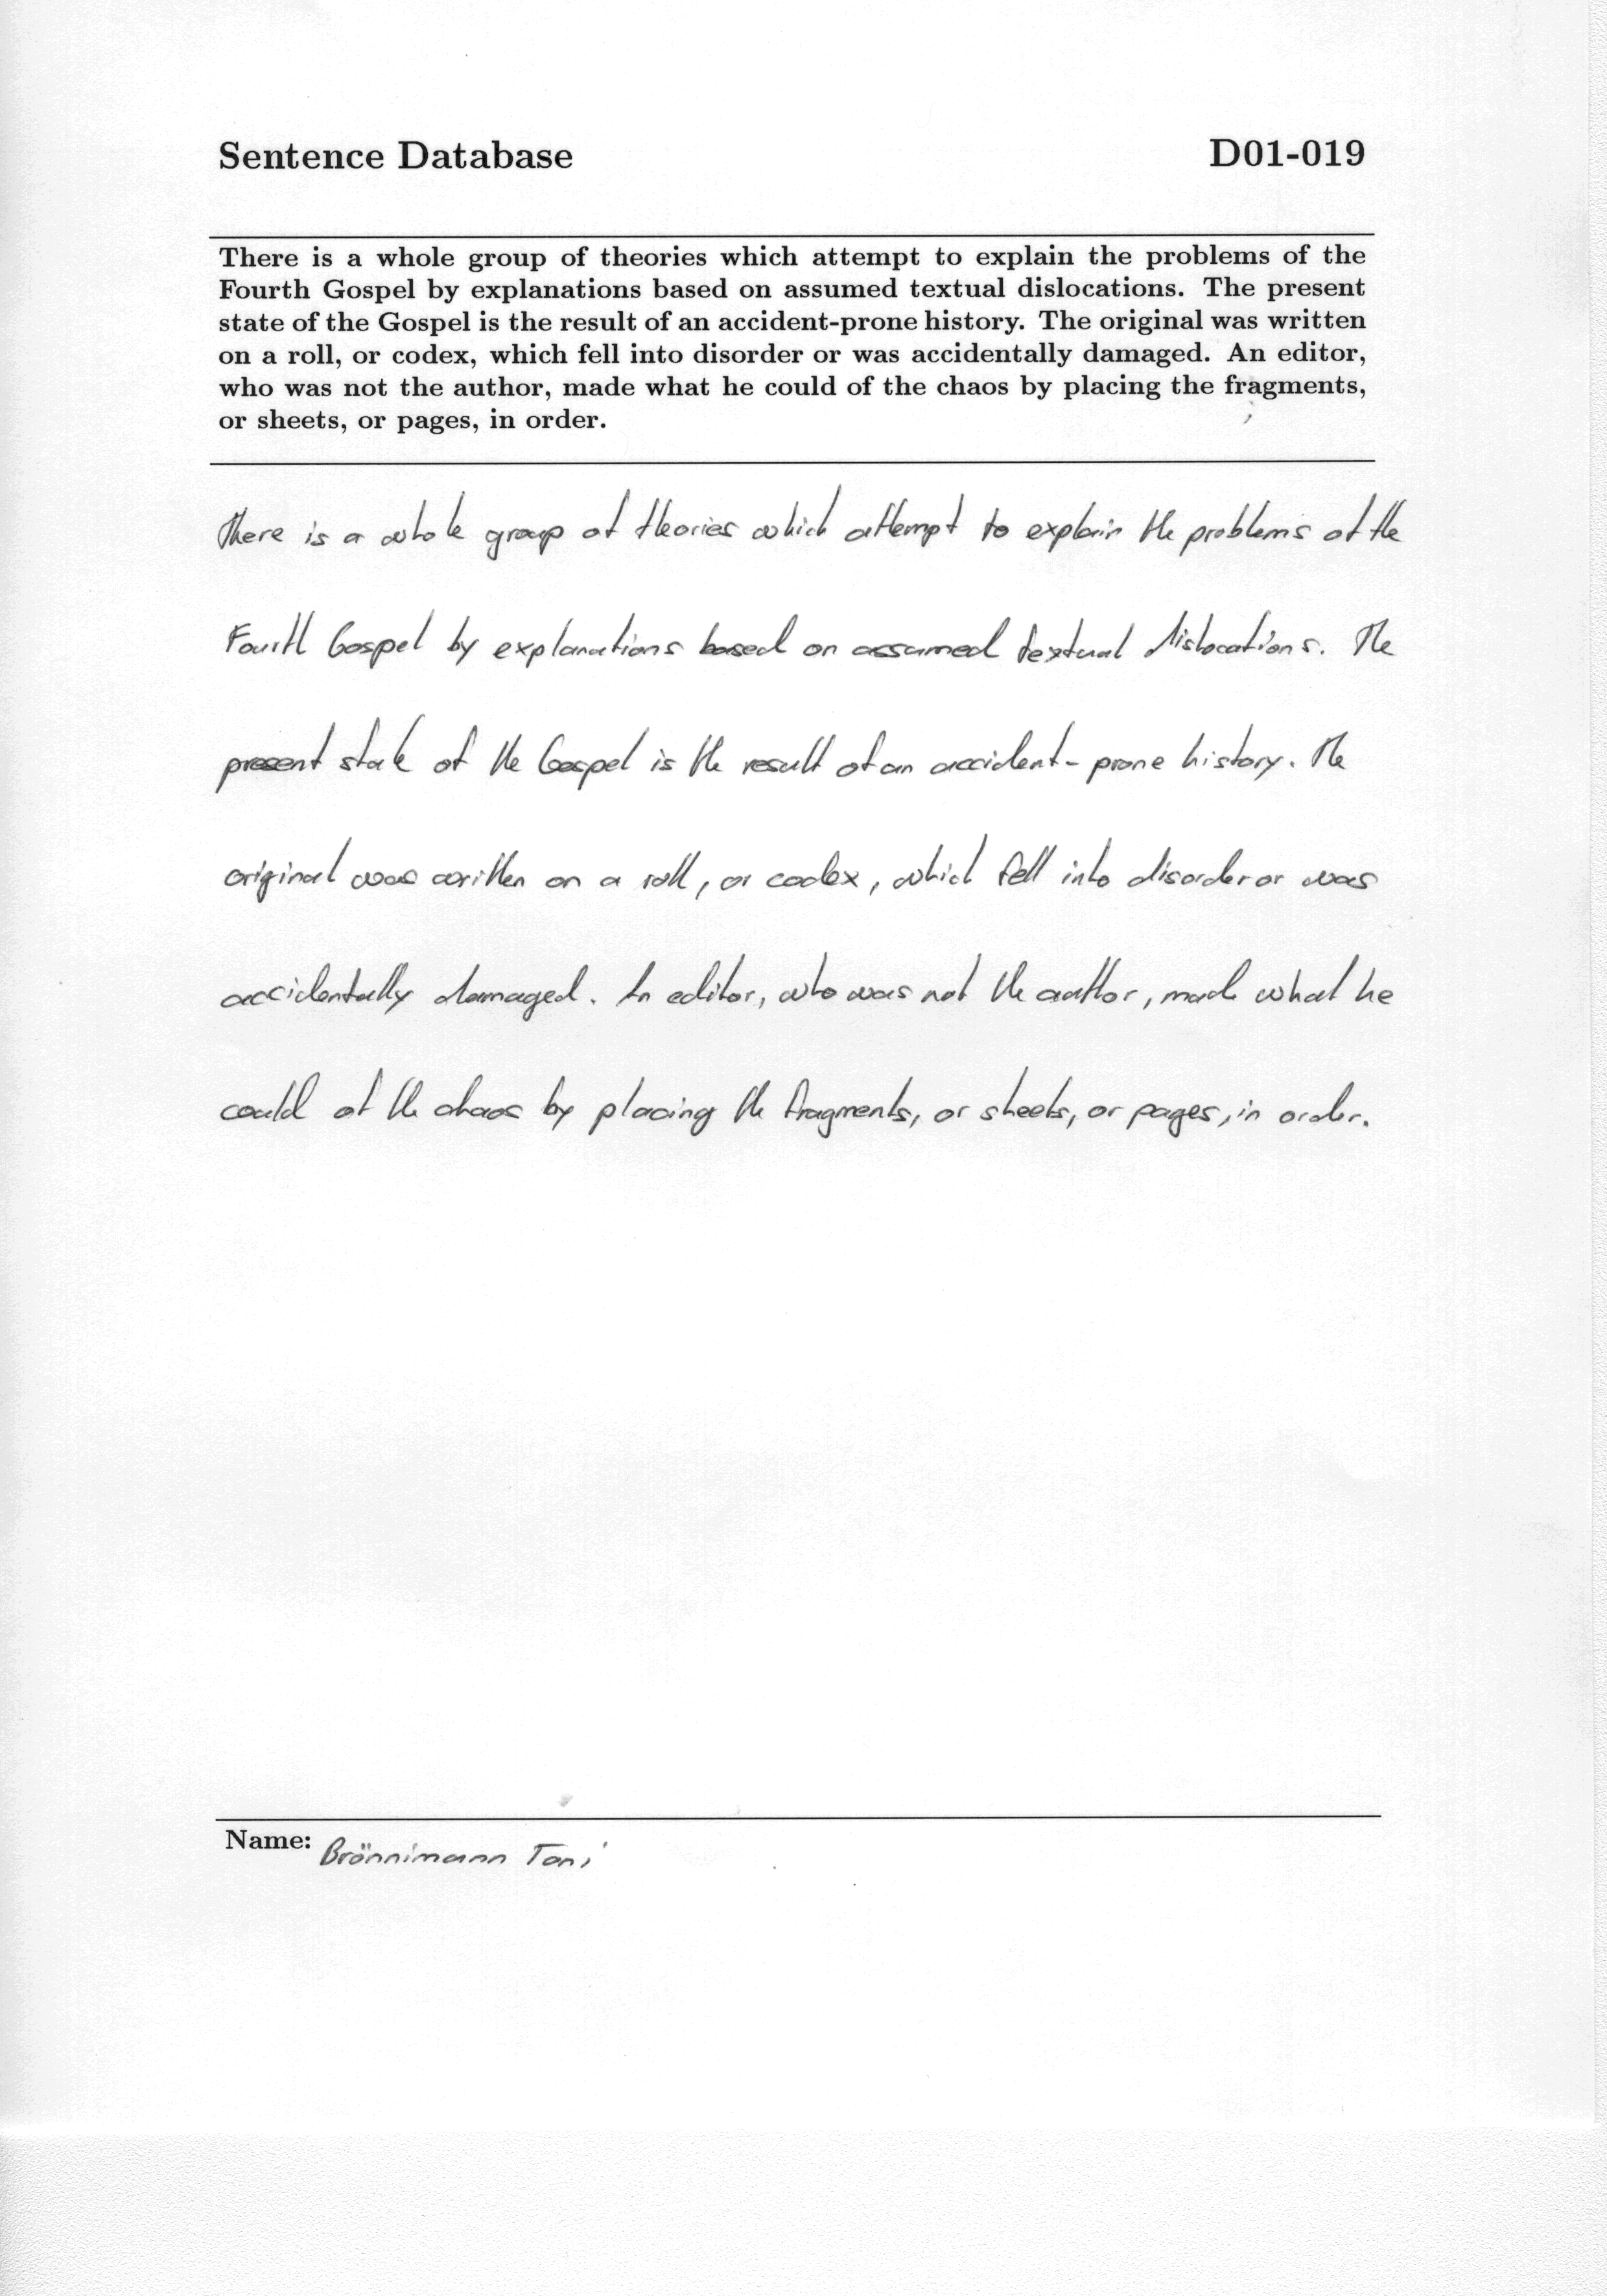 Sentence Database D01-019
There is a whole group of theories which attempt to explain the problems of the
Fourth Gospel by explanations based on assumed textual dislocations. The present
state of the Gospel is the result of an accident-prone history. The original was written
on a roll, or codex, which fell into disorder or was accidentally damaged. An editor,
who was not the author, made what he could of the chaos by placing the fragments,
or sheets, or pages, in order.
There is a whole group of theories which attempt to explain the problems of the
Fourth Gospel by explanations based on assumed textual dislocations. The
present state of the Gospel is the result of an accident-prone history. The
original was written on a roll, or codex, which fell into disorder or was
accidentally damaged. An editor, who was not the author, made what he
could of the chaos by placing the fragments, or sheets, or pages, in order.
Name: Brönnimann Toni